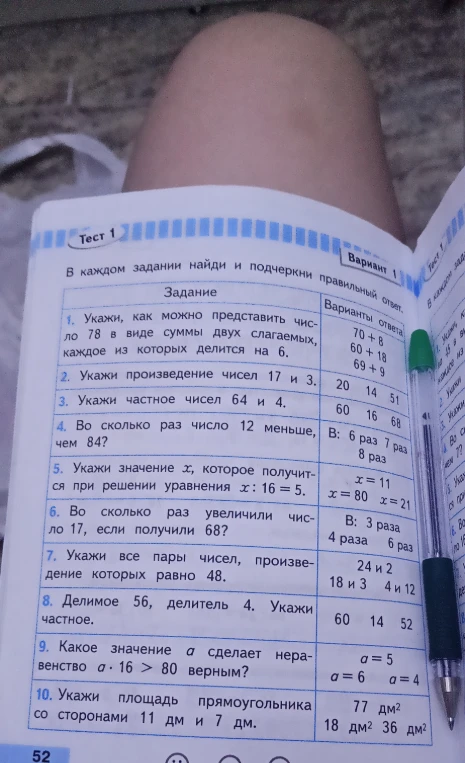 Тест 1
Вариант 1
В каждом задании найди и подчеркни правильный ответ.
Задание
Варианты ответа
1. Укажи, как можно представить чис-
ло 78 в виде суммы двух слагаемых,
каждое из которых делится на 6.
70 + 8
60 + 18
69 + 9
2. Укажи произведение чисел 17 и 3.
20 14 51
3. Укажи частное чисел 64 и 4.
60 16 68
4. Во сколько раз число 12 меньше,
чем 84?
В: 6 раз 7 раз
8 раз
5. Укажи значение x, которое получит-
ся при решении уравнения x : 16 = 5.
x = 11
x = 80 x = 21
6. Во сколько раз увеличили чис-
ло 17, если получили 68?
В: 3 раза
4 раза 6 раз
7. Укажи все пары чисел, произве-
дение которых равно 48.
24 и 2
18 и 3 4 и 12
8. Делимое 56, делитель 4. Укажи
частное.
60 14 52
9. Какое значение a сделает нера-
венство a · 16 > 80 верным?
a = 5
a = 6 a = 4
10. Укажи площадь прямоугольника
со сторонами 11 дм и 7 дм.
77 дм²
18 дм² 36 дм²
52
Тест 1